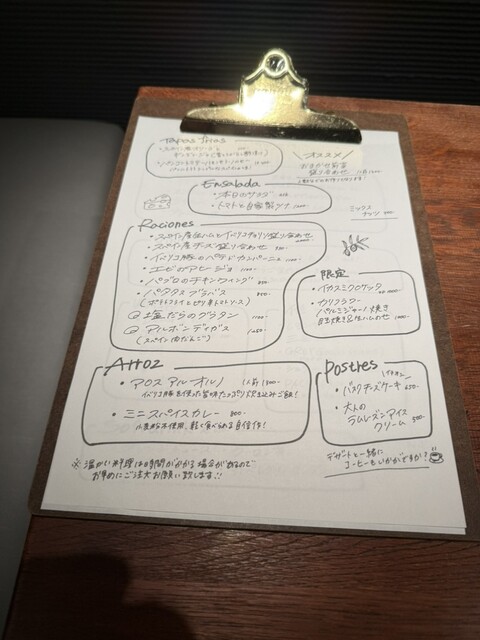 Tapas frias
オススメ
おまかせ前菜
盛り合わせ
Ensalada
・本日のサラダ
・トマトと自家製ツナ 1000-
ミックス
ナッツ
Raciones
・スペイン産生ハムとイベリコチョリソ盛り合わせ
・スペイン産チーズ盛り合わせ
・イベリコ豚のパテドカンパーニュ 1100-
・エビのアヒージョ 1100-
・パブロのチキンウィング 850-
・パタタス ブラバス 800-
(ポテトフライとピリ辛トマトソース)
塩だらのグラタン 1100-
アルボンディガス
(スペイン肉だんご)
限定
・イカスミクロケッタ
・カリフラワー
パルミジャーノ焼き
目玉焼き&生ハムのせ 1000-
Arroz
・アロス アル オルノ 1人前 1800-
イベリコ豚を使った旨味たっぷり炊き込みご飯!
・ミニスパイスカレー 800-
小麦粉不使用、軽く食べられる自信作!
Postres
・バスクチーズケーキ 650-
・大人の
ラムレーズンアイス
クリーム 500-
※ 温かい料理はお時間がかかる場合がありますので
お早めにご注文お願い致します!!
デザートと一緒に
コーヒーもいかがですか?